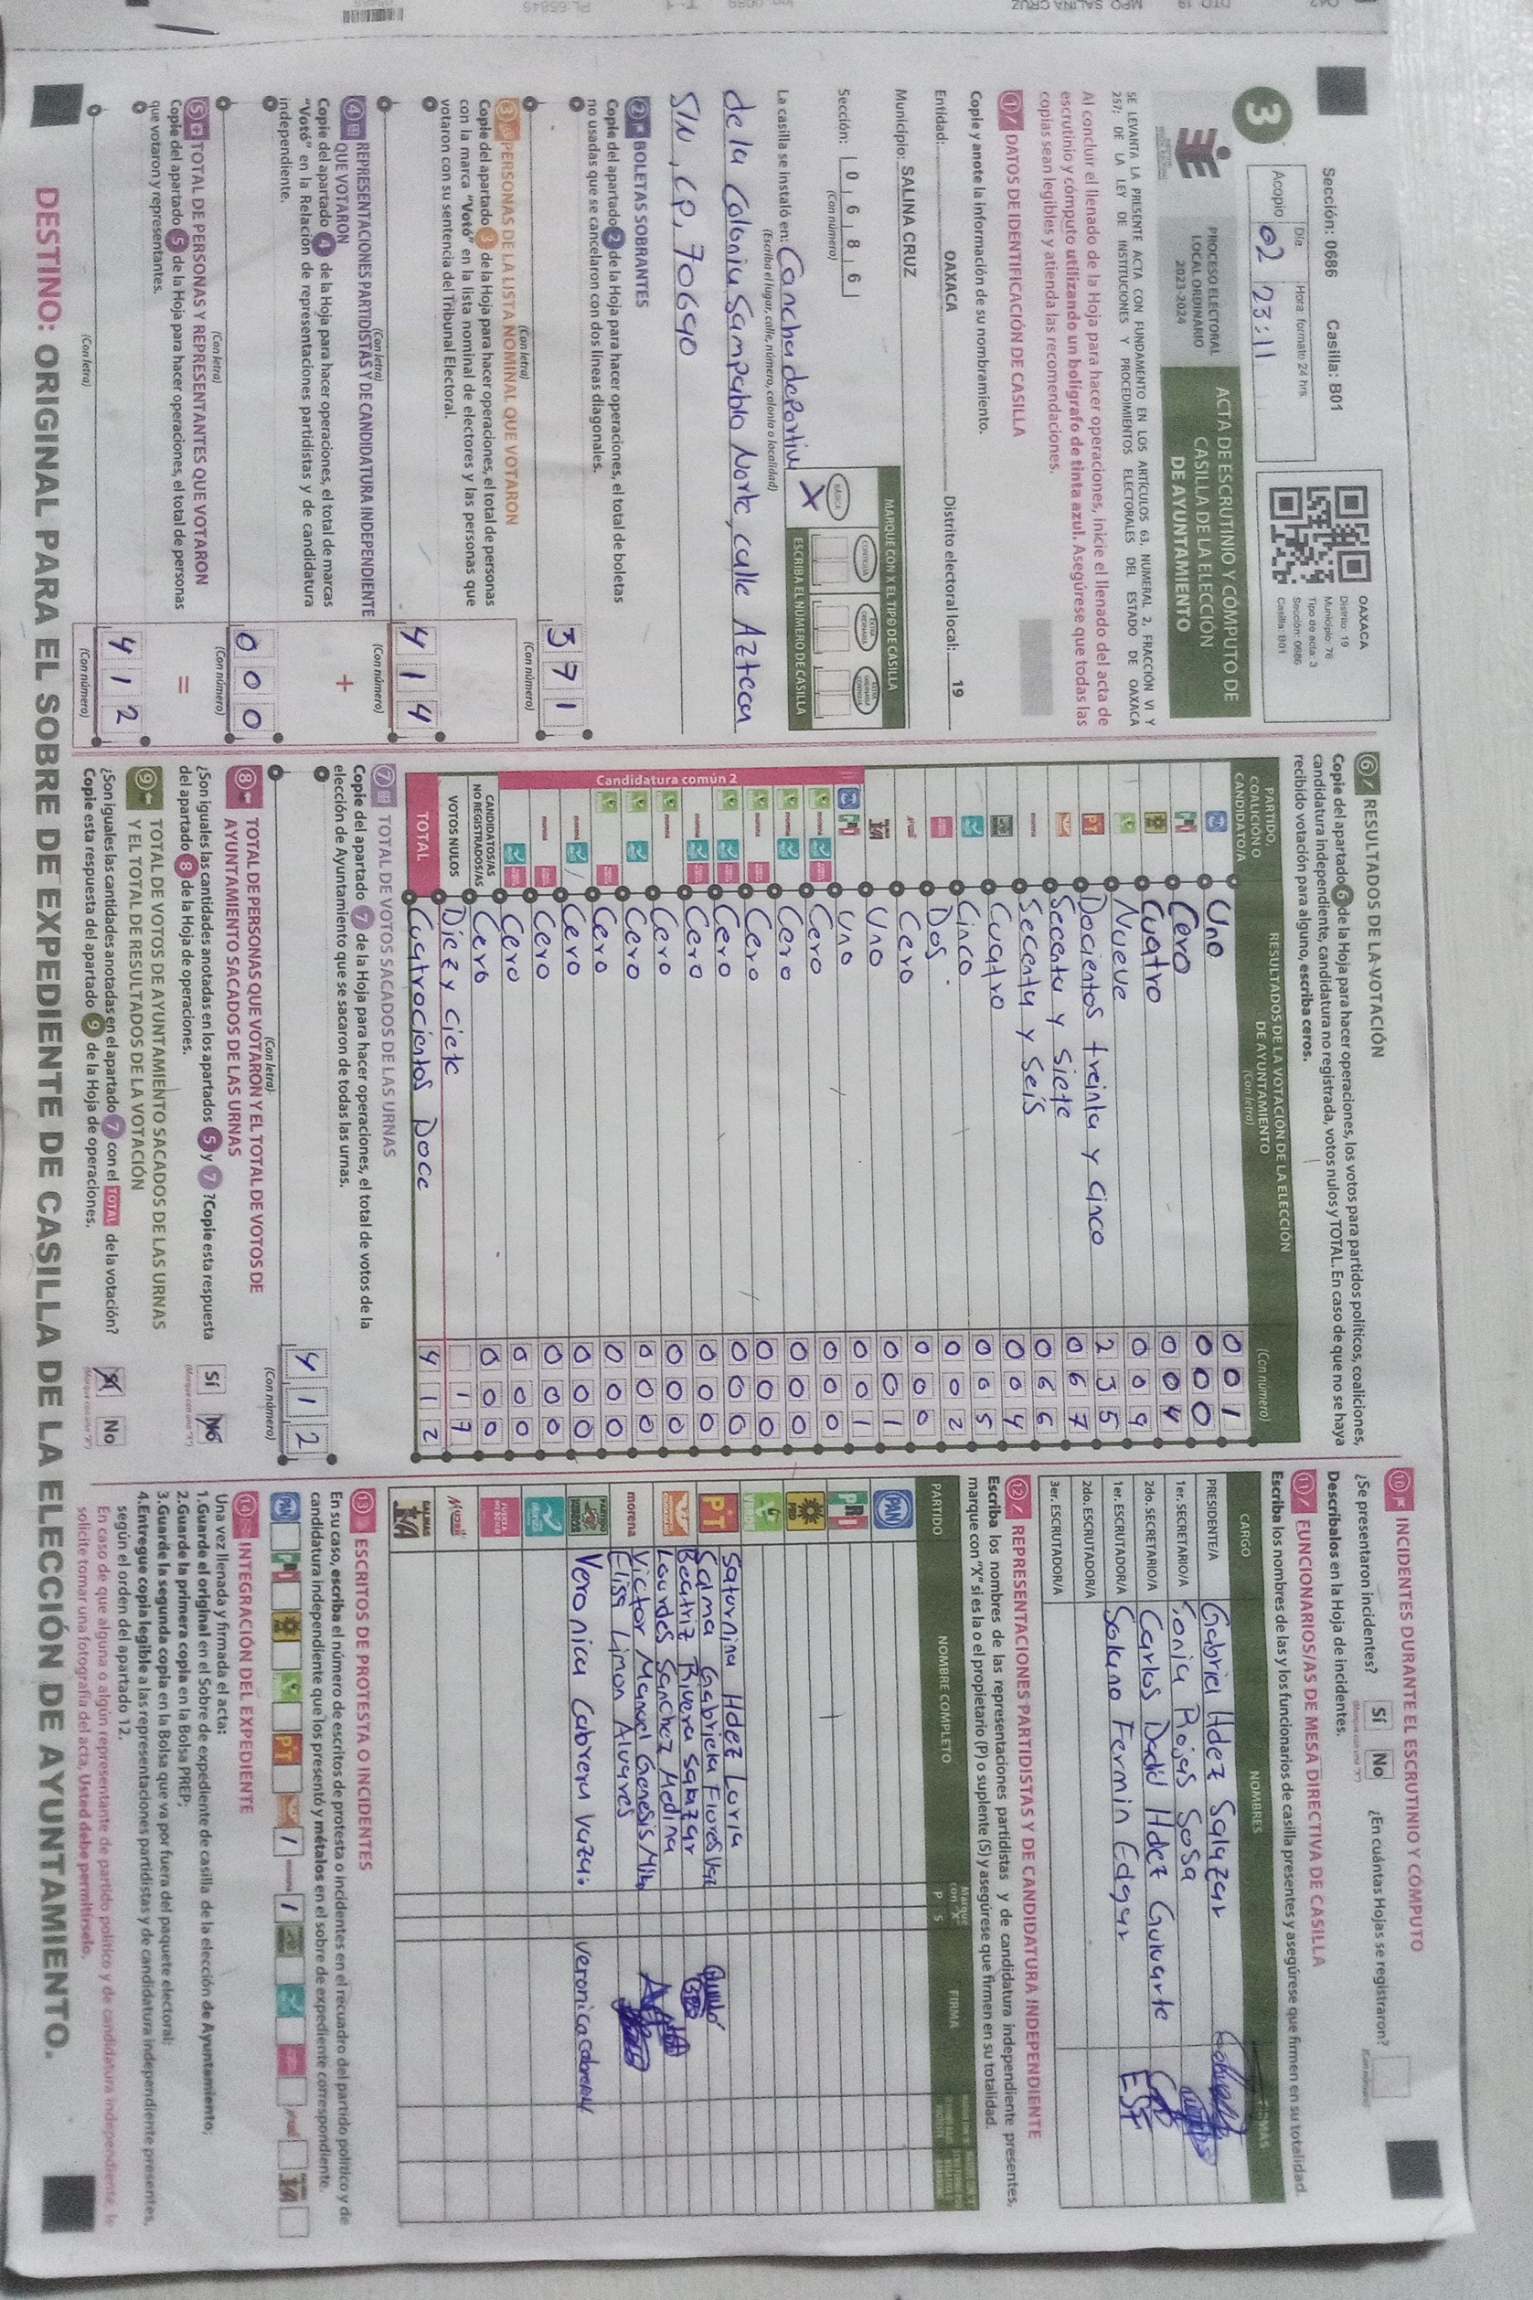 Sección: 0686 Casilla: B01
3
Acopio
Día
Hora: formato 24 hrs.
02
23:11
OAXACA
Distrito: 19
Municipio: 76
Tipo de acta: 3
Sección: 0686
Casilla: B01
PROCESO ELECTORAL
LOCAL ORDINARIO
2023-2024
ACTA DE ESCRUTINIO Y CÓMPUTO DE
CASILLA DE LA ELECCIÓN
DE AYUNTAMIENTO
SE LEVANTA LA PRESENTE ACTA CON FUNDAMENTO EN LOS ARTÍCULOS 63, NUMERAL 2, FRACCIÓN VI Y
257; DE LA LEY DE INSTITUCIONES Y PROCEDIMIENTOS ELECTORALES DEL ESTADO DE OAXACA
Al concluir el llenado de la Hoja para hacer operaciones, inicie el llenado del acta de
escrutinio y cómputo utilizando un bolígrafo de tinta azul. Asegúrese que todas las
copias sean legibles y atienda las recomendaciones.
1 DATOS DE IDENTIFICACIÓN DE CASILLA
Copie y anote la información de su nombramiento.
Entidad: OAXACA Distrito electoral local: 19
Municipio: SALINA CRUZ
Sección: 0 6 8 6
(Con número)
MARQUE CON X EL TIPO DE CASILLA
BÁSICA
CONTIGUA
X
ESCRIBA EL NÚMERO DE CASILLA
La casilla se instaló en: Cancha deportiva
(Escriba el lugar, calle, número, colonia o localidad)
de la Colonia Sampablo Norte, calle Azteca
S/N, C.P. 70690
2 BOLETAS SOBRANTES
Copie del apartado 2 de la Hoja para hacer operaciones, el total de boletas
no usadas que se cancelaron con dos líneas diagonales.
371
(Con letra) (Con número)
3 PERSONAS DE LA LISTA NOMINAL QUE VOTARON
Copie del apartado 3 de la Hoja para hacer operaciones, el total de personas
con la marca "Votó" en la lista nominal de electores y las personas que
votaron con su sentencia del Tribunal Electoral.
414
(Con letra) (Con número)
4 REPRESENTACIONES PARTIDISTAS Y DE CANDIDATURA INDEPENDIENTE
QUE VOTARON
+
Copie del apartado 4 de la Hoja para hacer operaciones, el total de marcas
"Votó" en la Relación de representaciones partidistas y de candidatura
independiente.
000
(Con letra) (Con número)
5 TOTAL DE PERSONAS Y REPRESENTANTES QUE VOTARON
=
Copie del apartado 5 de la Hoja para hacer operaciones, el total de personas
que votaron y representantes.
412
(Con letra) (Con número)
6 RESULTADOS DE LA VOTACIÓN
Copie del apartado 6 de la Hoja para hacer operaciones, los votos para partidos políticos, coaliciones,
candidatura independiente, candidatura no registrada, votos nulos y TOTAL. En caso de que no se haya
recibido votación para alguno, escriba ceros.
PARTIDO,
COALICIÓN O
CANDIDATO/A
RESULTADOS DE LA VOTACIÓN DE LA ELECCIÓN
DE AYUNTAMIENTO
(Con letra)
(Con número)
Uno 001
Cero 000
Cuatro 004
Nueve 009
Docientos treinta y cinco 235
Secenta y siete 067
Secenta y seis 066
Cuatro 004
Cinco 005
Dos 002
Cero 000
Uno 001
Uno 001
Candidatura común 2
Cero 000
Cero 000
Cero 000
Cero 000
Cero 000
Cero 000
Cero 000
Cero 000
Cero 000
Cero 000
Cero 000
CANDIDATOS/AS
NO REGISTRADOS/AS
Cero 000
VOTOS NULOS
Diez y ciete 17
TOTAL
Cuatrocientos Doce 412
7 TOTAL DE VOTOS SACADOS DE LAS URNAS
Copie del apartado 7 de la Hoja para hacer operaciones, el total de votos de la
elección de Ayuntamiento que se sacaron de todas las urnas.
412
(Con letra) (Con número)
8 TOTAL DE PERSONAS QUE VOTARON Y EL TOTAL DE VOTOS DE
AYUNTAMIENTO SACADOS DE LAS URNAS
¿Son iguales las cantidades anotadas en los apartados 5 y 7? Copie esta respuesta
del apartado 8 de la Hoja de operaciones.
Sí No
9 TOTAL DE VOTOS DE AYUNTAMIENTO SACADOS DE LAS URNAS
Y EL TOTAL DE RESULTADOS DE LA VOTACIÓN
¿Son iguales las cantidades anotadas en el apartado 7 con el TOTAL de la votación?
Copie esta respuesta del apartado 9 de la Hoja de operaciones.
Sí No
10 INCIDENTES DURANTE EL ESCRUTINIO Y CÓMPUTO
¿Se presentaron incidentes? Sí No ¿En cuántas Hojas se registraron?
Descríbalos en la Hoja de incidentes.
11 FUNCIONARIOS/AS DE MESA DIRECTIVA DE CASILLA
Escriba los nombres de las y los funcionarios de casilla presentes y asegúrese que firmen en su totalidad.
CARGO NOMBRES FIRMAS
PRESIDENTE/A Gabriel Hdez Salazar
1er. SECRETARIO/A Sonia Rojas Sosa
2do. SECRETARIO/A Carlos David Hdez Guivarte
1er. ESCRUTADOR/A Solano Fermin Edgar ESF
2do. ESCRUTADOR/A
3er. ESCRUTADOR/A
12 REPRESENTACIONES PARTIDISTAS Y DE CANDIDATURA INDEPENDIENTE
Escriba los nombres de las representaciones partidistas y de candidatura independiente presentes,
marque con "X" si es la o el propietario (P) o suplente (S) y asegúrese que firmen en su totalidad.
PARTIDO NOMBRE COMPLETO Marque con "X" P S FIRMA
PAN
PRI
PRD
VERDE
PT
Saturnina Hdez Loria
Sama Gabriela Flores
Beatriz Rivera Salazar
Lourdes Sanchez Medina
morena
Victor Manuel Genesis
Eliss Limon Alvares
Veronica Cabrera
13 ESCRITOS DE PROTESTA O INCIDENTES
En su caso, escriba el número de escritos de protesta o incidentes en el recuadro del partido político y de
candidatura independiente que los presentó y métalos en el sobre de expediente correspondiente.
PAN PRI PT 1 1
14 INTEGRACIÓN DEL EXPEDIENTE
Una vez llenada y firmada el acta:
1.Guarde el original en el Sobre de expediente de casilla de la elección de Ayuntamiento;
2.Guarde la primera copia en la Bolsa PREP;
3.Guarde la segunda copia en la Bolsa que va por fuera del paquete electoral;
4.Entregue copia legible a las representaciones partidistas y de candidatura independiente presentes,
según el orden del apartado 12.
En caso de que alguna o algún representante de partido político y de candidatura independiente, le
solicite tomar una fotografía del acta, Usted debe permitírselo.
DESTINO: ORIGINAL PARA EL SOBRE DE EXPEDIENTE DE CASILLA DE LA ELECCIÓN DE AYUNTAMIENTO.